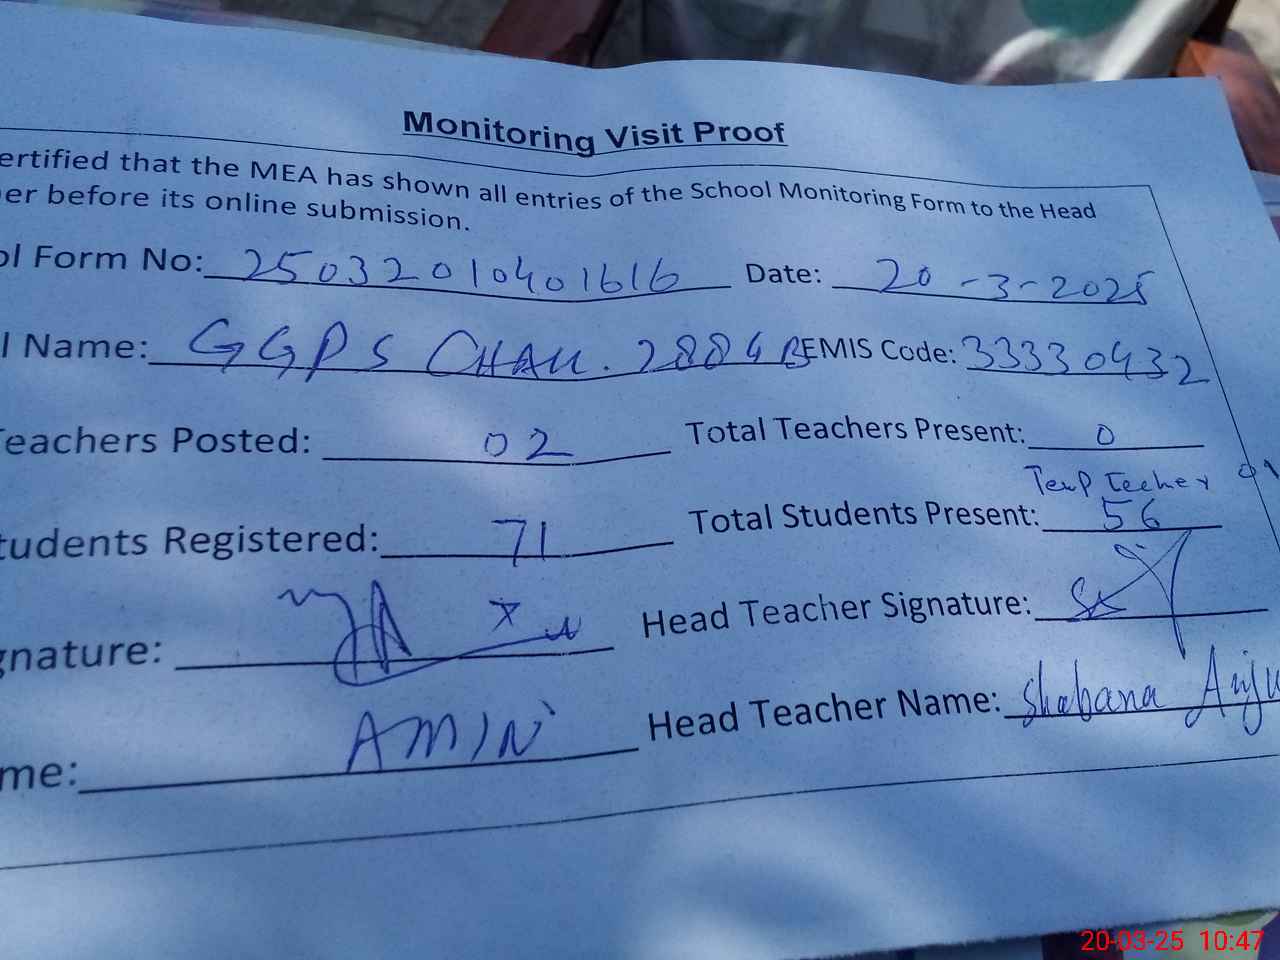 Monitoring Visit Proof
ertified that the MEA has shown all entries of the School Monitoring Form to the Head
er before its online submission.
ol Form No: 25032010401616 Date: 20-3-2025
l Name: GGPS CHAK. 288GB EMIS Code: 33330432
Teachers Posted: 02 Total Teachers Present: 0
Temp Techer 01
tudents Registered: 71 Total Students Present: 56
gnature: Head Teacher Signature:
me: AMIN Head Teacher Name: Shabana Anju
20-03-25 10:47